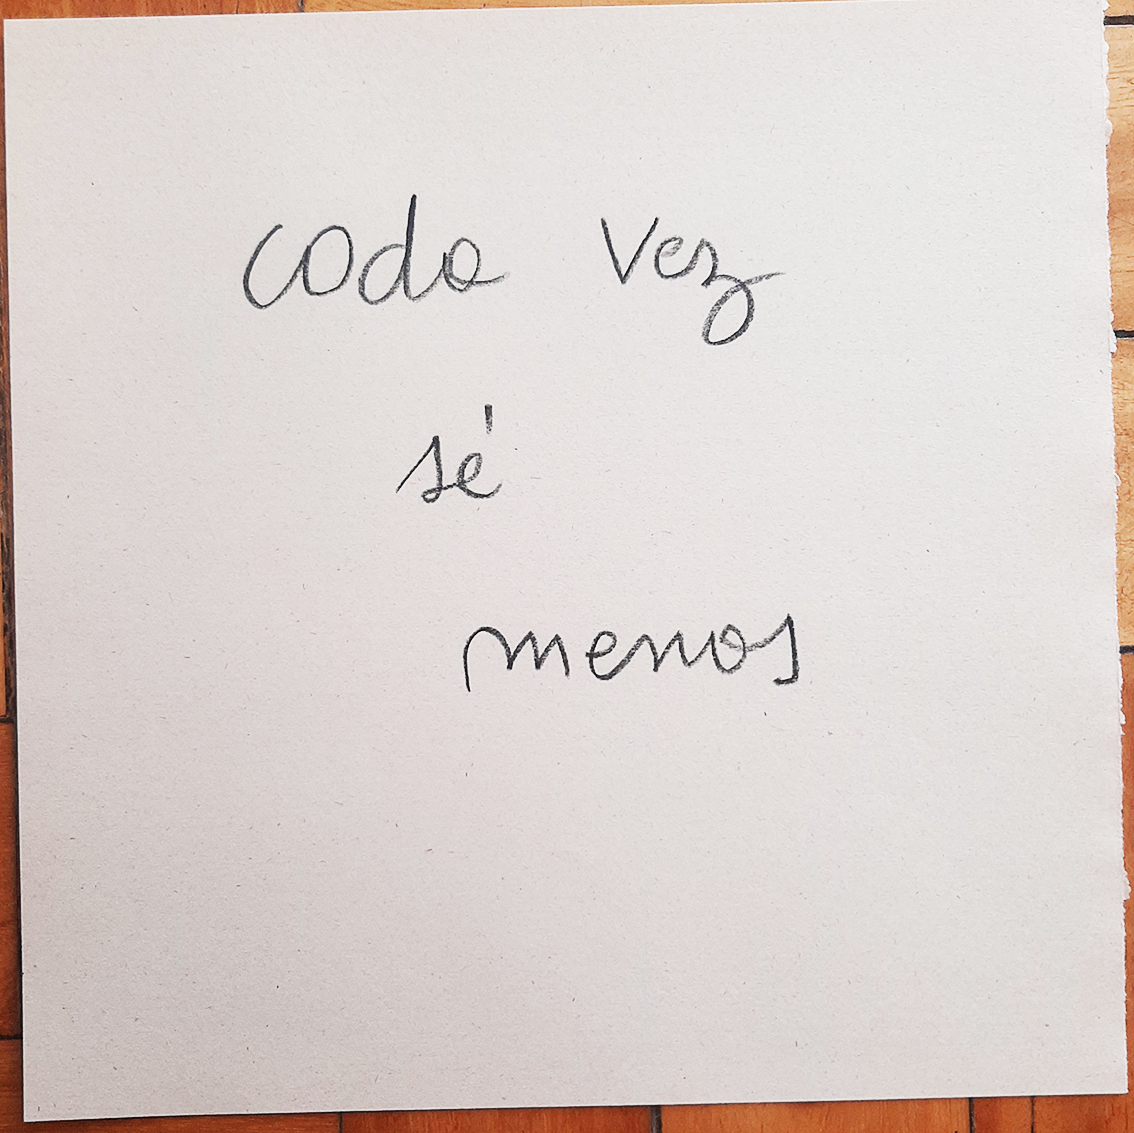 cada vez
sé
menos